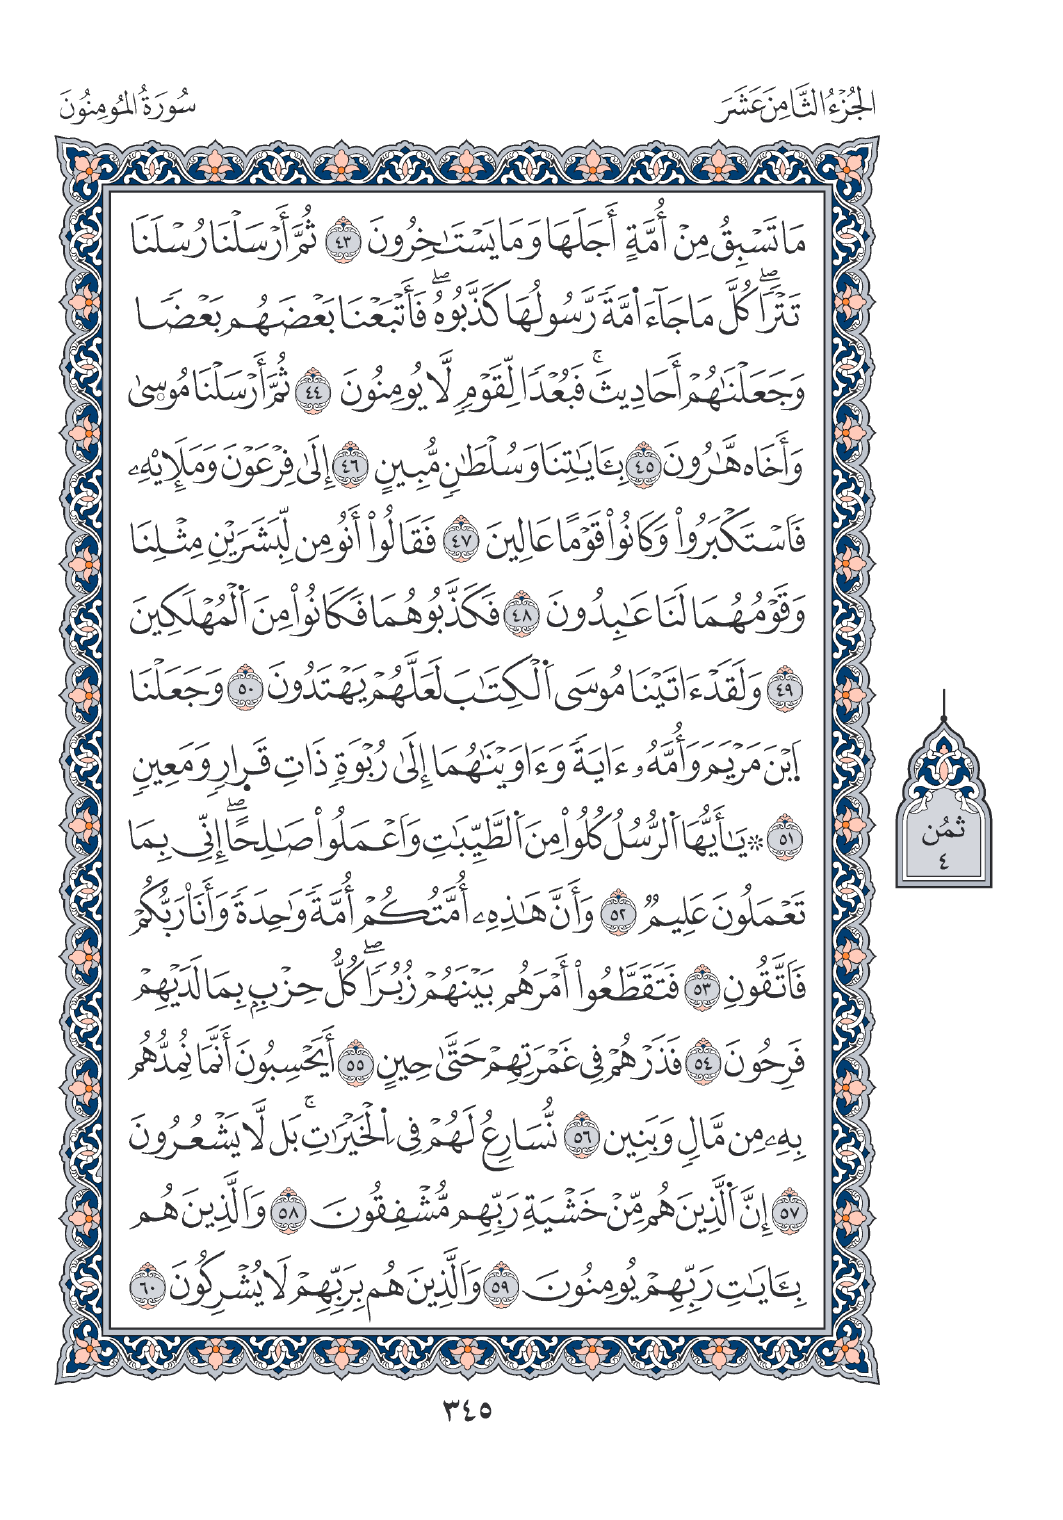 الجُزْءُ الثَّامِنَ عَشَرَ
سُورَةُ المُومِنُونَ
مَا تَسْبِقُ مِنْ أُمَّةٍ أَجَلَهَا وَمَا يَسْتَـٰخِرُونَ ٤٣ ثُمَّ أَرْسَلْنَا رُسْلَنَا
تَتْرَاۖ كُلَّ مَا جَآءَ اَ۟مَّةٗ رَّسُولُهَا كَذَّبُوهُۖ فَأَتْبَعْنَا بَعْضَهُم بَعْضٗا
وَجَعَلْنَٰهُمْ أَحَادِيثَۚ فَبُعْدٗا لِّقَوْمٖ لَّا يُومِنُونَ ٤٤ ثُمَّ أَرْسَلْنَا مُوسۭىٰ
وَأَخَاه هَّـٰرُونَ ٤٥ بِـَٔايَٰتِنَا وَسُلْطَٰنٖ مُّبِينٍ ٤٦ إِلَىٰ فِرْعَوْنَ وَمَلَإِيْهِۦ
فَاَسْتَكْبَرُواْ وَكَانُواْ قَوْمًا عَالِينَ ٤٧ فَقَالُواْ أَنُومِن لِّبَشَرَيْنِ مِثْلِنَا
وَقَوْمُهُمَا لَنَا عَٰبِدُونَ ٤٨ فَكَذَّبُوهُمَا فَكَانُواْ مِنَ اَ۬لْمُهْلَكِينَ
٤٩ وَلَقَدْ ءَاتَيْنَا مُوسَى اَ۬لْكِتَٰبَ لَعَلَّهُمْ يَهْتَدُونَ ٥٠ وَجَعَلْنَا
اَ۪بْنَ مَرْيَمَ وَأُمَّهُۥ ءَايَةٗ وَءَاوَيْنَٰهُمَا إِلَىٰ رُبْوَةٖ ذَاتِ قَرِ۪ارٖ وَمَعِينٖ
٥١ ۞يَـٰأَيُّهَا اَ۬لرُّسُلُ كُلُواْ مِنَ اَ۬لطَّيِّبَٰتِ وَاَعْمَلُواْ صَٰلِحًاۖ إِنِّي بِمَا
تَعْمَلُونَ عَلِيمٞ ٥٢ وَأَنَّ هَٰذِهِۦ أُمَّتُكُمْ أُمَّةٗ وَٰحِدَةٗ وَأَنَا۠ رَبُّكُمْ
فَاَتَّقُونِ ٥٣ فَتَقَطَّعُواْ أَمْرَهُم بَيْنَهُمْ زُبُرٗاۖ كُلُّ حِزْبِۢ بِمَا لَدَيْهِمْ
فَرِحُونَ ٥٤ فَذَرْهُمْ فِي غَمْرَتِهِمْ حَتَّىٰ حِينٍ ٥٥ أَيَحْسِبُونَ أَنَّمَا نُمِدُّهُم
بِهِۦ مِن مَّالٖ وَبَنِين ٥٦ نُّسَارِعُ لَهُمْ فِي اِ۬لْخَيْرَٰتِۚ بَل لَّا يَشْعُرُونَ
٥٧ إِنَّ اَ۬لَّذِينَ هُم مِّنْ خَشْيَةِ رَبِّهِم مُّشْفِقُونَ ٥٨ وَاَلَّذِينَ هُم
بِـَٔايَٰتِ رَبِّهِمْ يُومِنُونَ ٥٩ وَاَلَّذِينَ هُم بِرَبِّهِمْ لَا يُشْرِكُونَ ٦٠
ثمُن
٤
٣٤٥